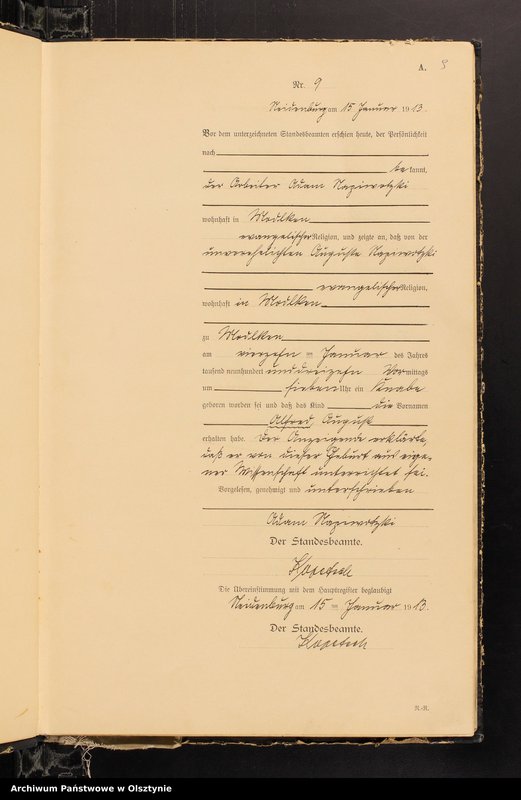 A. 9
Nr. 9
Neidenburg am 15 Januar 1913.
Vor dem unterzeichneten Standesbeamten erschien heute, der Persönlichkeit
nach
be kannt,
der Arbeiter Adam Napiwotzki
wohnhaft in Modlken
evangelischer Religion, und zeigte an, daß von der
unverehelichten Auguste Napiwotzki
evangelischer Religion,
wohnhaft in Modlken
zu Modlken
am vierzehn ten Januar des Jahres
tausend neunhundert und dreizehn Vor mittags
um sieben Uhr ein Knabe
geboren worden sei und daß das Kind die Vornamen
Alfred, August
erhalten habe. Der Anzeigende erklärte,
daß er von dieser Geburt aus eige-
ner Wissenschaft unterrichtet sei.
Vorgelesen, genehmigt und unterschrieben
Adam Napiwotzki
Der Standesbeamte.
Die Übereinstimmung mit dem Hauptregister beglaubigt
Neidenburg am 15 ten Januar 1913.
Der Standesbeamte.
R.-R.
Archiwum Państwowe w Olsztynie